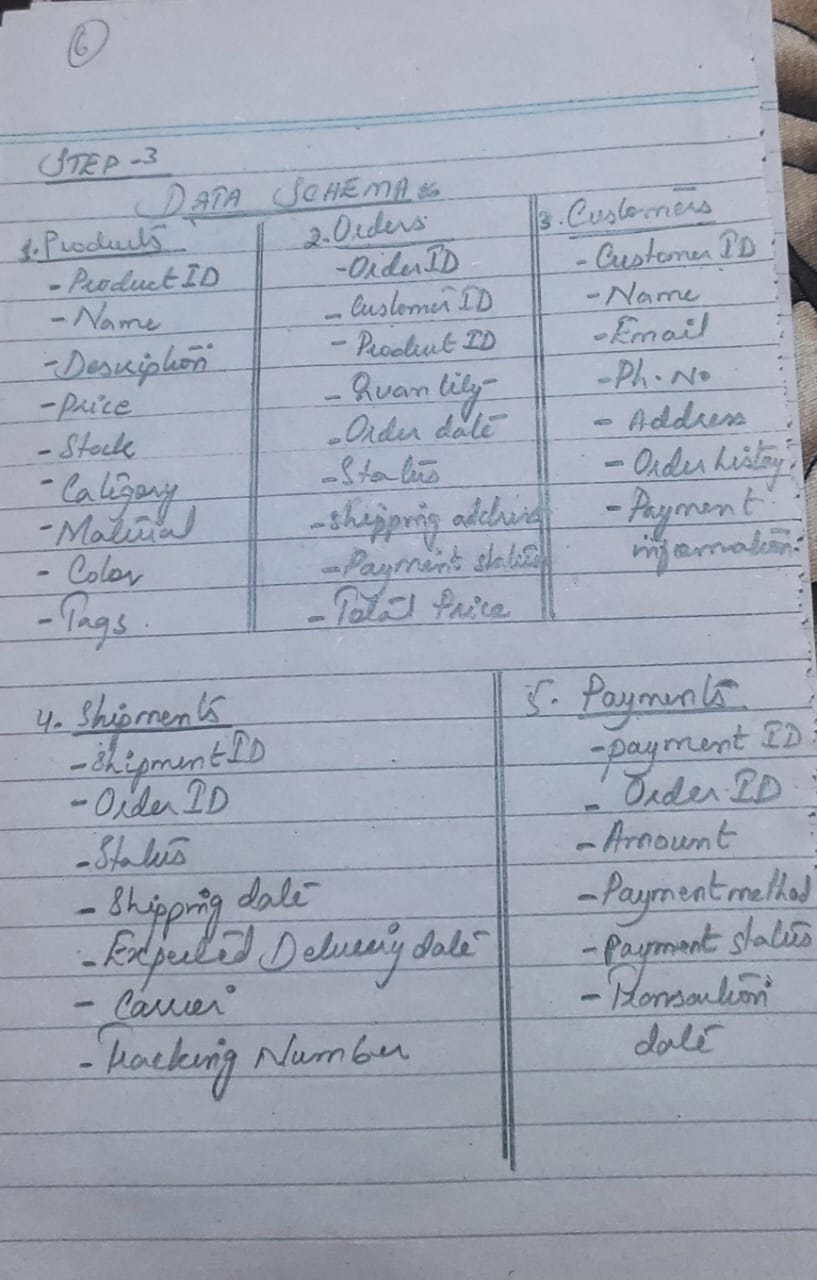 6
STEP-3
DATA SCHEMA:
1. Products
- Product ID
- Name
- Description
- Price
- Stock
- Category
- Material
- Color
- Tags.
2. Orders
- Order ID
- Customer ID
- Product ID
- Quantity
- Order date
- Status
- Shipping address
- Payment status
- Total Price
3. Customers
- Customer ID
- Name
- Email
- Ph. No
- Address
- Order history
- Payment
information.
4. Shipments
- Shipment ID
- Order ID
- Status
- Shipping date
- Expected Delivery date
- Carrier
- Tracking Number
5. Payments
- payment ID
- Order ID
- Amount
- Payment method
- Payment status
- Transaction
date